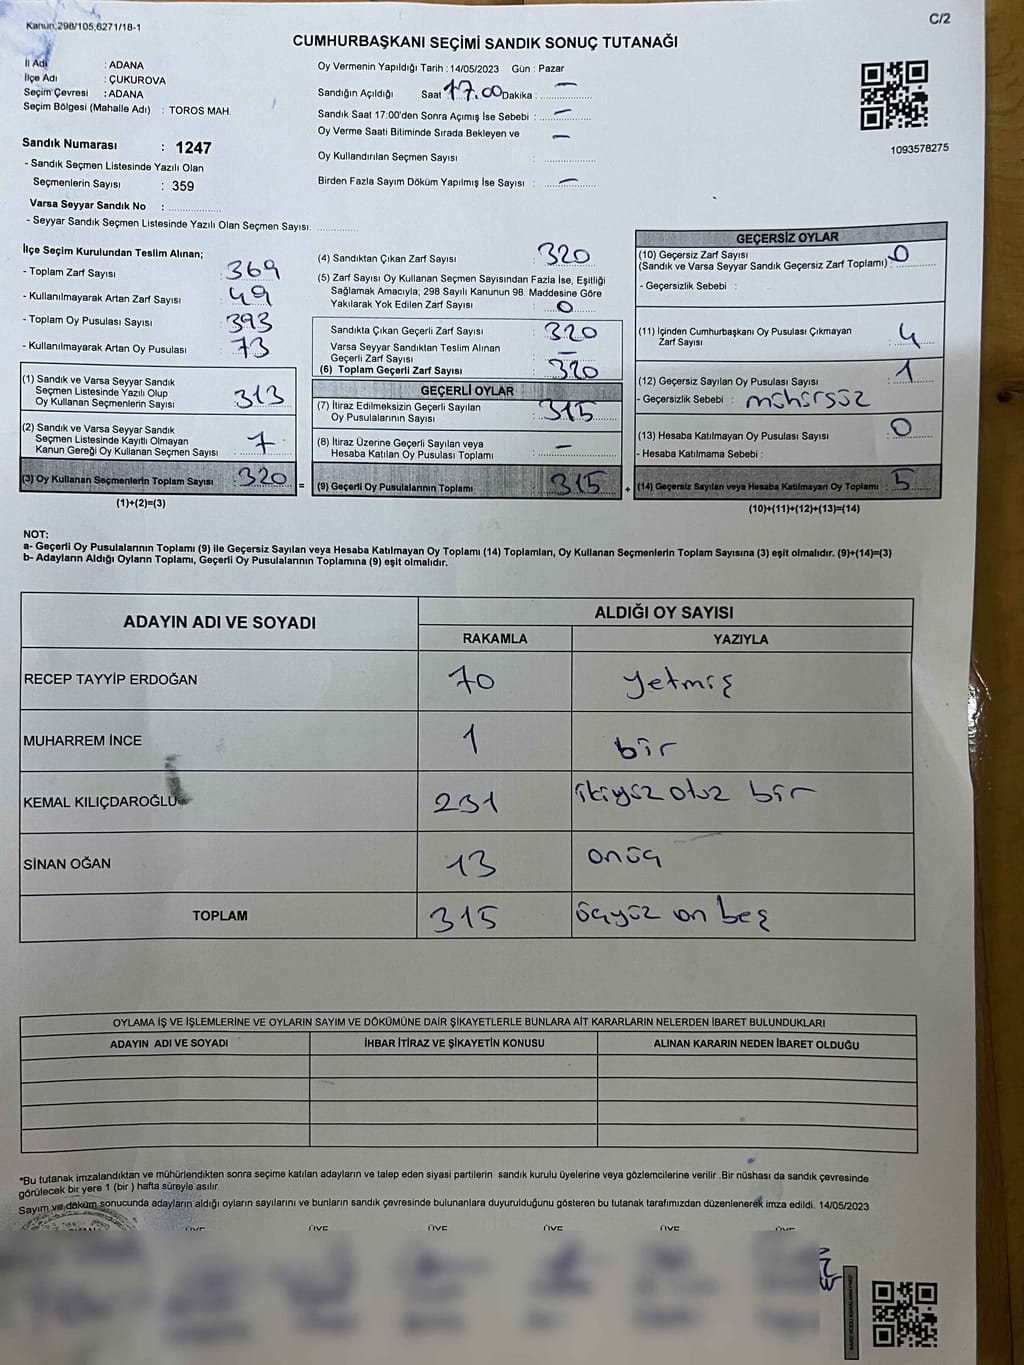 Kanun,298/105,6271/18-1
C/2
CUMHURBAŞKANI SEÇİMİ SANDIK SONUÇ TUTANAĞI
İl Adı : ADANA
İlçe Adı : ÇUKUROVA
Seçim Çevresi : ADANA
Seçim Bölgesi (Mahalle Adı) : TOROS MAH.
Sandık Numarası : 1247
- Sandık Seçmen Listesinde Yazılı Olan
Seçmenlerin Sayısı : 359
Varsa Seyyar Sandık No :
- Seyyar Sandık Seçmen Listesinde Yazılı Olan Seçmen Sayısı:
Oy Vermenin Yapıldığı Tarih : 14/05/2023 Gün : Pazar
Sandığın Açıldığı Saat 17.00 Dakika : —
Sandık Saat 17:00'den Sonra Açımış İse Sebebi : —
Oy Verme Saati Bitiminde Sırada Bekleyen ve —
Oy Kullandırılan Seçmen Sayısı :
Birden Fazla Sayım Döküm Yapılmış İse Sayısı : —
1093578275
İlçe Seçim Kurulundan Teslim Alınan;
- Toplam Zarf Sayısı : 369
- Kullanılmayarak Artan Zarf Sayısı : 49
- Toplam Oy Pusulası Sayısı : 393
- Kullanılmayarak Artan Oy Pusulası : 73
(1) Sandık ve Varsa Seyyar Sandık
Seçmen Listesinde Yazılı Olup
Oy Kullanan Seçmenlerin Sayısı : 313
(2) Sandık ve Varsa Seyyar Sandık
Seçmen Listesinde Kayıtlı Olmayan
Kanun Gereği Oy Kullanan Seçmen Sayısı : 7
(3) Oy Kullanan Seçmenlerin Toplam Sayısı : 320
(1)+(2)=(3)
=
(4) Sandıktan Çıkan Zarf Sayısı : 320
(5) Zarf Sayısı Oy Kullanan Seçmen Sayısından Fazla İse, Eşitliği
Sağlamak Amacıyla, 298 Sayılı Kanunun 98. Maddesine Göre
Yakılarak Yok Edilen Zarf Sayısı : 0
Sandıkta Çıkan Geçerli Zarf Sayısı : 320
Varsa Seyyar Sandıktan Teslim Alınan
Geçerli Zarf Sayısı : —
(6) Toplam Geçerli Zarf Sayısı : 320
GEÇERLİ OYLAR
(7) İtiraz Edilmeksizin Geçerli Sayılan
Oy Pusulalarının Sayısı : 315
(8) İtiraz Üzerine Geçerli Sayılan veya
Hesaba Katılan Oy Pusulası Toplamı : —
(9) Geçerli Oy Pusulalarının Toplamı : 315
+
GEÇERSİZ OYLAR
(10) Geçersiz Zarf Sayısı
(Sandık ve Varsa Seyyar Sandık Geçersiz Zarf Toplamı) : 0
- Geçersizlik Sebebi :
(11) İçinden Cumhurbaşkanı Oy Pusulası Çıkmayan
Zarf Sayısı : 4
(12) Geçersiz Sayılan Oy Pusulası Sayısı : 1
- Geçersizlik Sebebi : mühürsüz
(13) Hesaba Katılmayan Oy Pusulası Sayısı : 0
- Hesaba Katılmama Sebebi :
(14) Geçersiz Sayılan veya Hesaba Katılmayan Oy Toplamı : 5
(10)+(11)+(12)+(13)=(14)
NOT:
a- Geçerli Oy Pusulalarının Toplamı (9) ile Geçersiz Sayılan veya Hesaba Katılmayan Oy Toplamı (14) Toplamları, Oy Kullanan Seçmenlerin Toplam Sayısına (3) eşit olmalıdır. (9)+(14)=(3)
b- Adayların Aldığı Oyların Toplamı, Geçerli Oy Pusulalarının Toplamına (9) eşit olmalıdır.
ADAYIN ADI VE SOYADI ALDIĞI OY SAYISI
RAKAMLA YAZIYLA
RECEP TAYYİP ERDOĞAN 70 yetmiş
MUHARREM İNCE 1 bir
KEMAL KILIÇDAROĞLU 231 ikiyüz otuz bir
SİNAN OĞAN 13 onüç
TOPLAM 315 üçyüz on beş
OYLAMA İŞ VE İŞLEMLERİNE VE OYLARIN SAYIM VE DÖKÜMÜNE DAİR ŞİKAYETLERLE BUNLARA AİT KARARLARIN NELERDEN İBARET BULUNDUKLARI
ADAYIN ADI VE SOYADI İHBAR İTİRAZ VE ŞİKAYETİN KONUSU ALINAN KARARIN NEDEN İBARET OLDUĞU
*Bu tutanak imzalandıktan ve mühürlendikten sonra seçime katılan adayların ve talep eden siyasi partilerin sandık kurulu üyelerine veya gözlemcilerine verilir .Bir nüshası da sandık çevresinde
görülecek bir yere 1 (bir ) hafta süreyle asılır.
Sayım ve döküm sonucunda adayların aldığı oyların sayılarını ve bunların sandık çevresinde bulunanlara duyurulduğunu gösteren bu tutanak tarafımızdan düzenlenerek imza edildi. 14/05/2023
ÜYE ÜYE ÜYE ÜYE ÜYE ÜYE